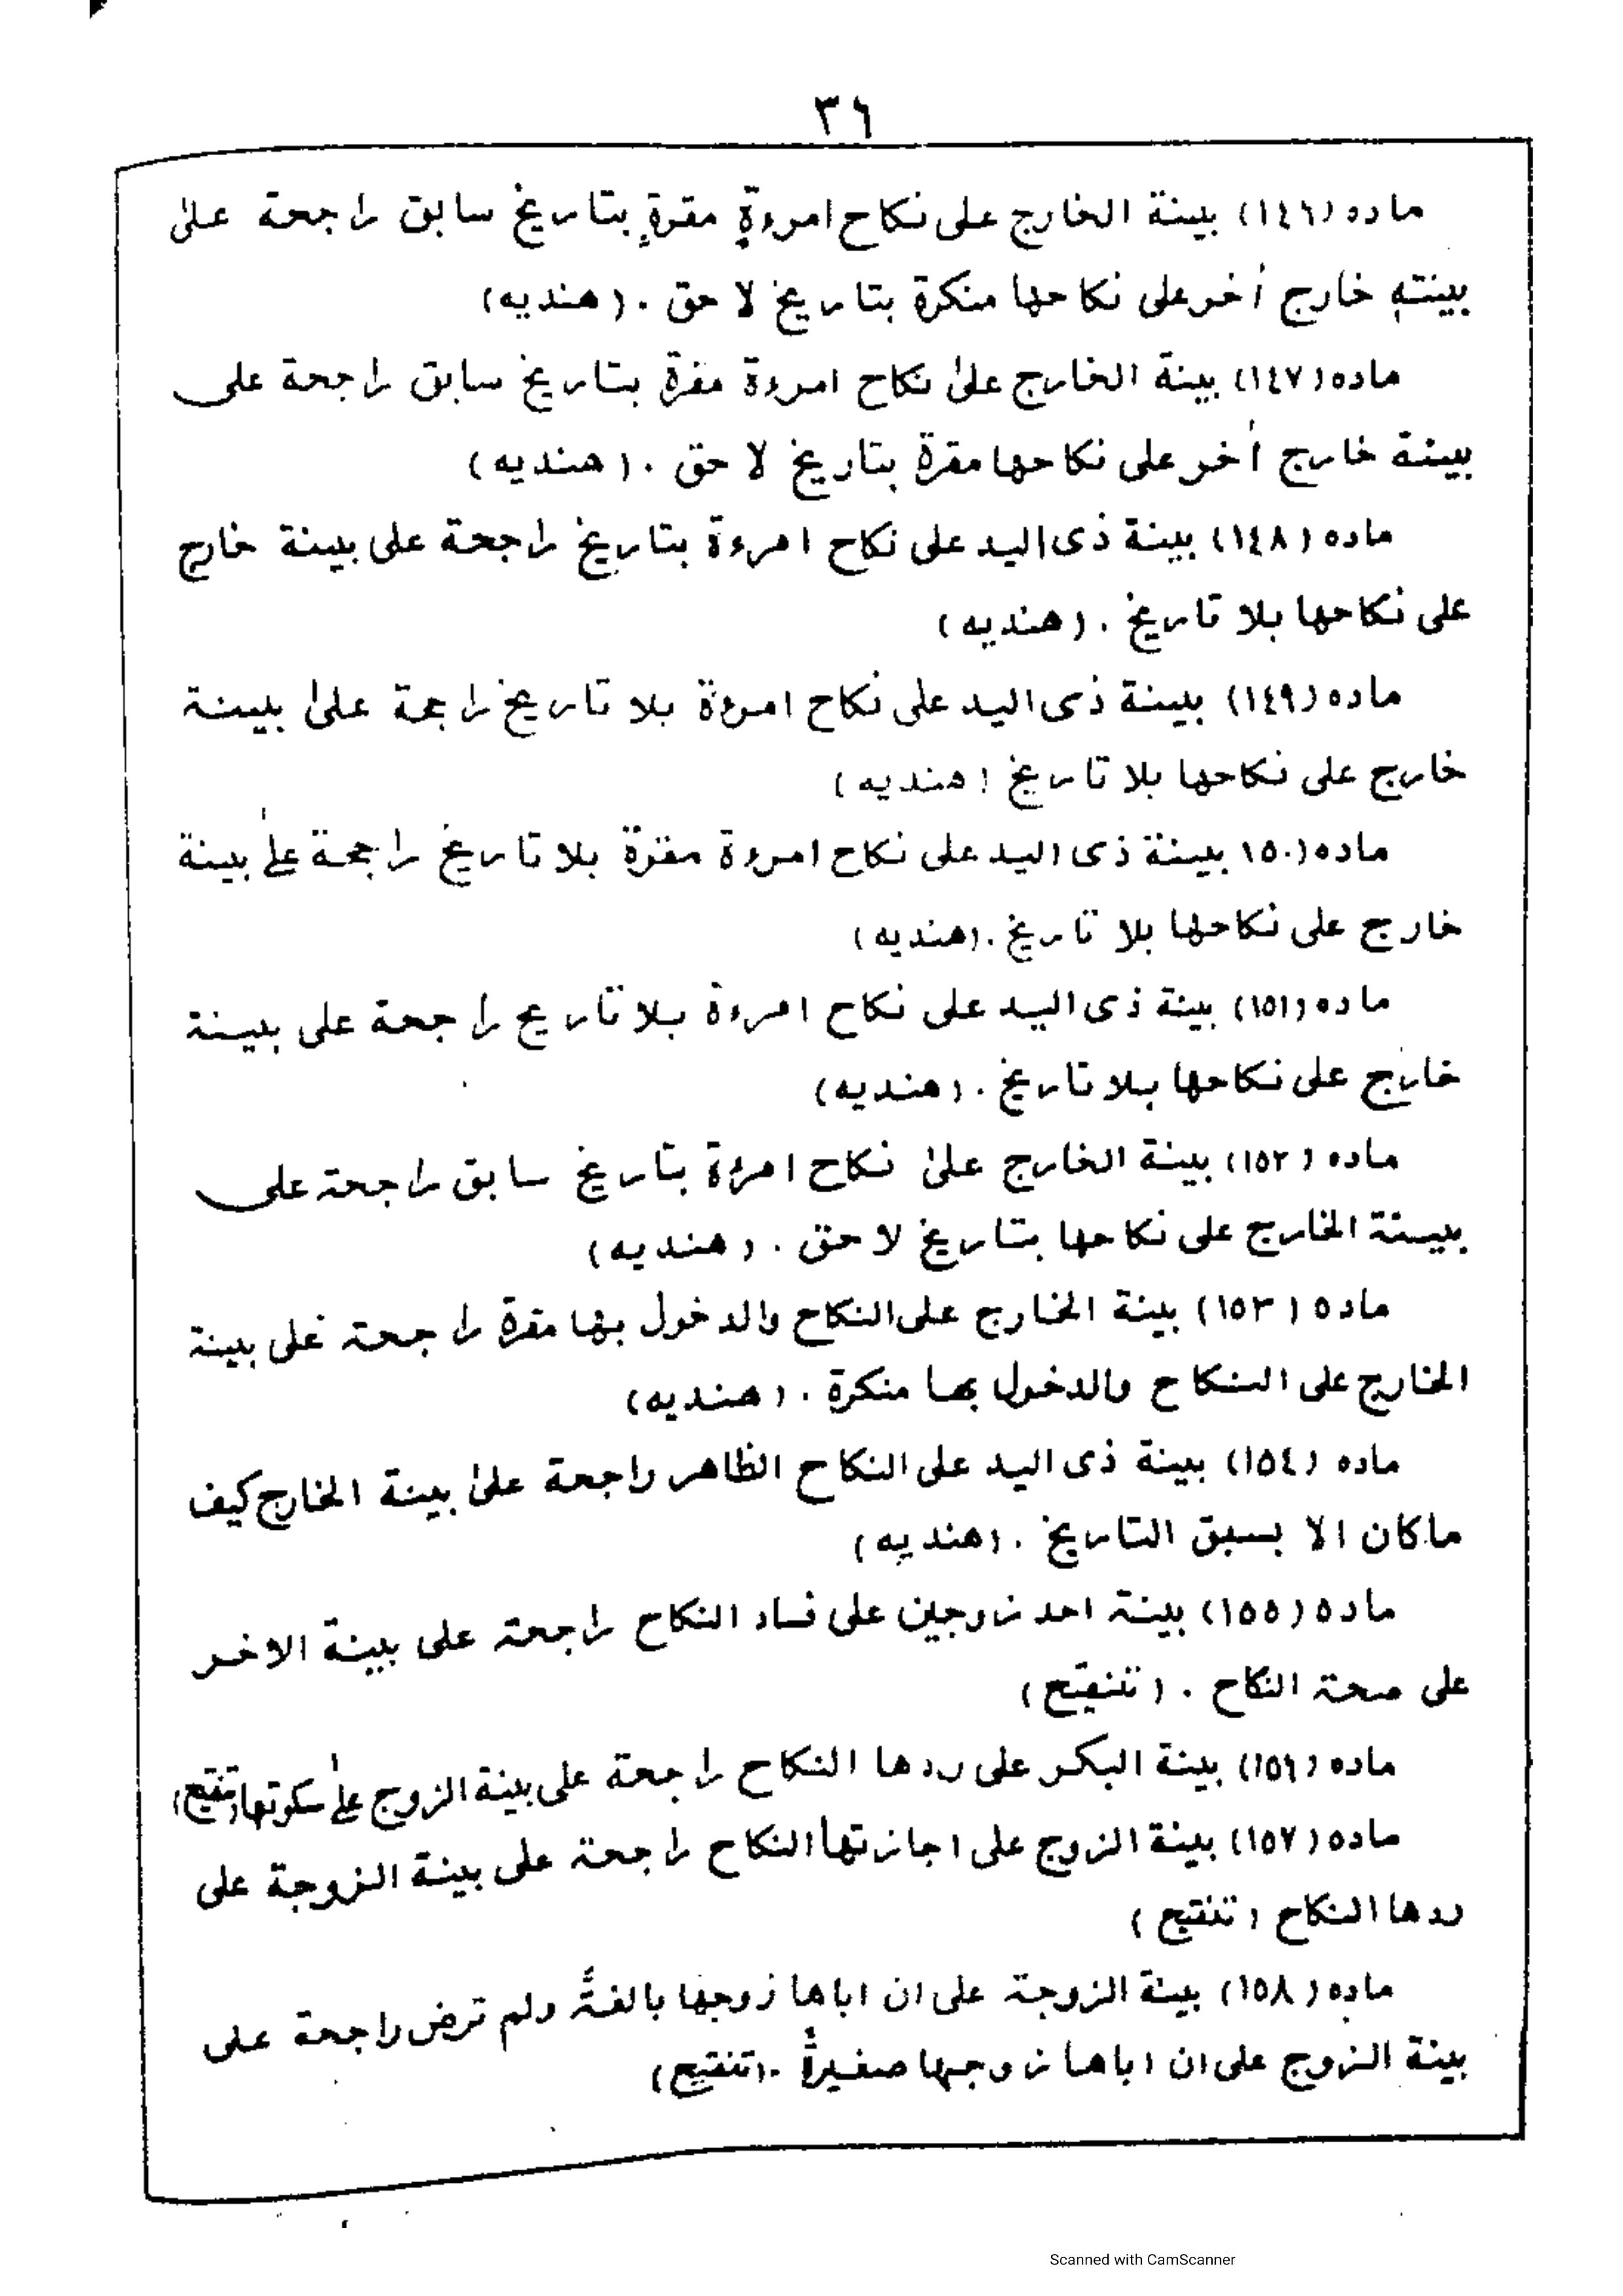 ٣٦
ماده (١٤٦) بينة الخارج على نكاح امرءةٍ مقرةٍ بتاريخ سابق راجحة علىٰ
بينته خارج أخر على نكاحها منكرة بتاريخ لاحق . (هنديه)
ماده (١٤٧) بينة الخارج علىٰ نكاح امرءة مقرة بتاريخ سابق راجحة على
بينة خارج أخر على نكاحها مقرة بتاريخ لاحق . (هنديه)
ماده (١٤٨) بينة ذى اليد على نكاح امرءة بتاريخ راجحة على بينة خارج
على نكاحها بلا تاريخ . (هنديه)
ماده (١٤٩) بينة ذى اليد على نكاح امرءة بلا تاريخ راجحة علىٰ بينة
خارج على نكاحها بلا تاريخ (هنديه)
ماده (١٥٠ بينة ذى اليد على نكاح امرءة مقرة بلا تاريخ راجحة علىٰ بينة
خارج على نكاحها بلا تاريخ . (هنديه)
ماده (١٥١) بينة ذى اليد على نكاح امرءة بلا تاريخ راجحة على بينة
خارج على نكاحها بلا تاريخ . (هنديه)
ماده (١٥٢) بينة الخارج علىٰ نكاح امرءة بتاريخ سابق راجحة على
بينة الخارج على نكاحها بتاريخ لاحق . (هنديه)
ماده (١٥٣) بينة الخارج على النكاح والدخول بها مقرة راجحة على بينة
الخارج على النكاح والدخول بها منكرة . (هنديه)
ماده (١٥٤) بينة ذى اليد على النكاح الظاهر راجحة علىٰ بينة الخارج كيف
ماكان الا بسبق التاريخ . (هنديه)
ماده (١٥٥) بينة احد زوجين على فساد النكاح راجحة على بينة الاخر
على صحة النكاح . (تنقيح)
ماده (١٥٦) بينة البكر على ردها النكاح راجحة على بينة الزوج علىٰ سكوتها (تنقيح)
ماده (١٥٧) بينة الزوج على اجازتها النكاح راجحة على بينة الزوجة على
ردها النكاح (تنقيح)
ماده (١٥٨) بينة الزوجة على ان اباها زوجها بالغةً ولم ترض راجحة على
بينة الزوج على ان اباها زوجها صغيرةً . (تنقيح)
Scanned with CamScanner